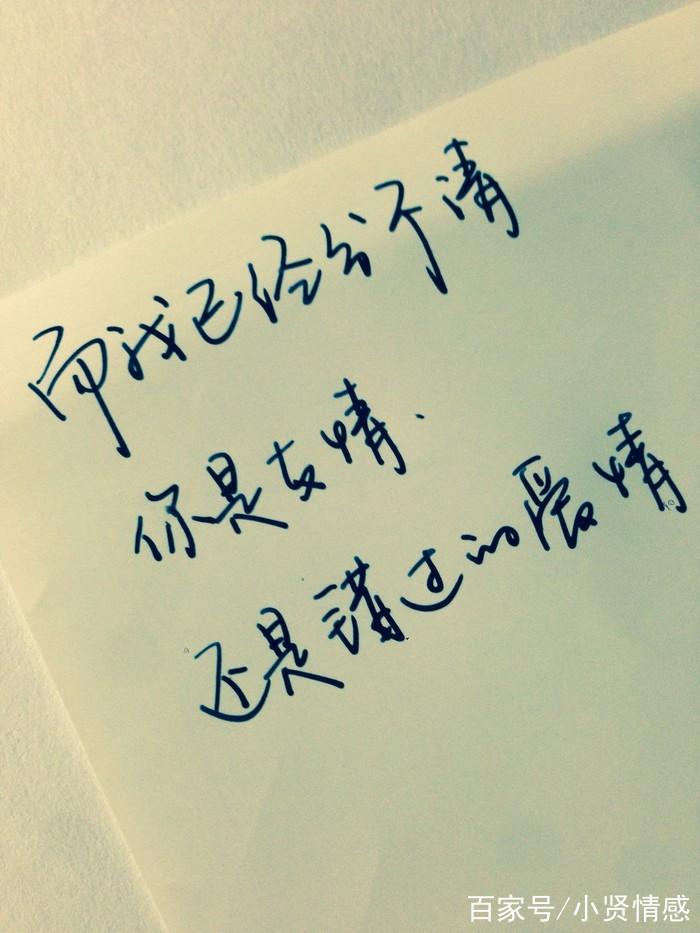 而我已经分不清
你是友情、
还是错过的爱情
百家号/小贤情感